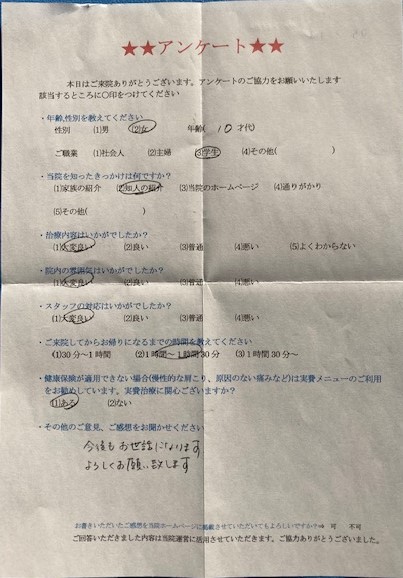 ★★アンケート★★
本日はご来院ありがとうございます。アンケートのご協力をお願いいたします
該当するところに〇印をつけてください
・年齢,性別を教えてください
性別 (1)男 (2)女 年齢( 10 才代)
ご職業 (1)社会人 (2)主婦 (3)学生 (4)その他( )
・当院を知ったきっかけは何ですか?
(1)家族の紹介 (2)知人の紹介 (3)当院のホームページ (4)通りがかり
(5)その他( )
・治療内容はいかがでしたか?
(1)大変良い (2)良い (3)普通 (4)悪い (5)よくわからない
・院内の雰囲気はいかがでしたか?
(1)大変良い (2)良い (3)普通 (4)悪い
・スタッフの対応はいかがでしたか?
(1)大変良い (2)良い (3)普通 (4)悪い
・ご来院してからお帰りになるまでの時間を教えてください
(1)30分～1時間 (2)1時間～1時間30分 (3)1時間30分～
・健康保険が適用できない場合(慢性的な肩こり、原因のない痛みなど)は実費メニューのご利用
をお勧めしています。実費治療に関心ございますか?
(1)ある (2)ない
・その他のご意見、ご感想をお聞かせください
今後もお世話になります
よろしくお願い致します
お書きいただいたご感想を当院ホームページに掲載させていただいてもよろしいですか?⇒ 可 不可
ご回答いただきました内容は当院運営に活用させていただきます。ご協力ありがとうございました。